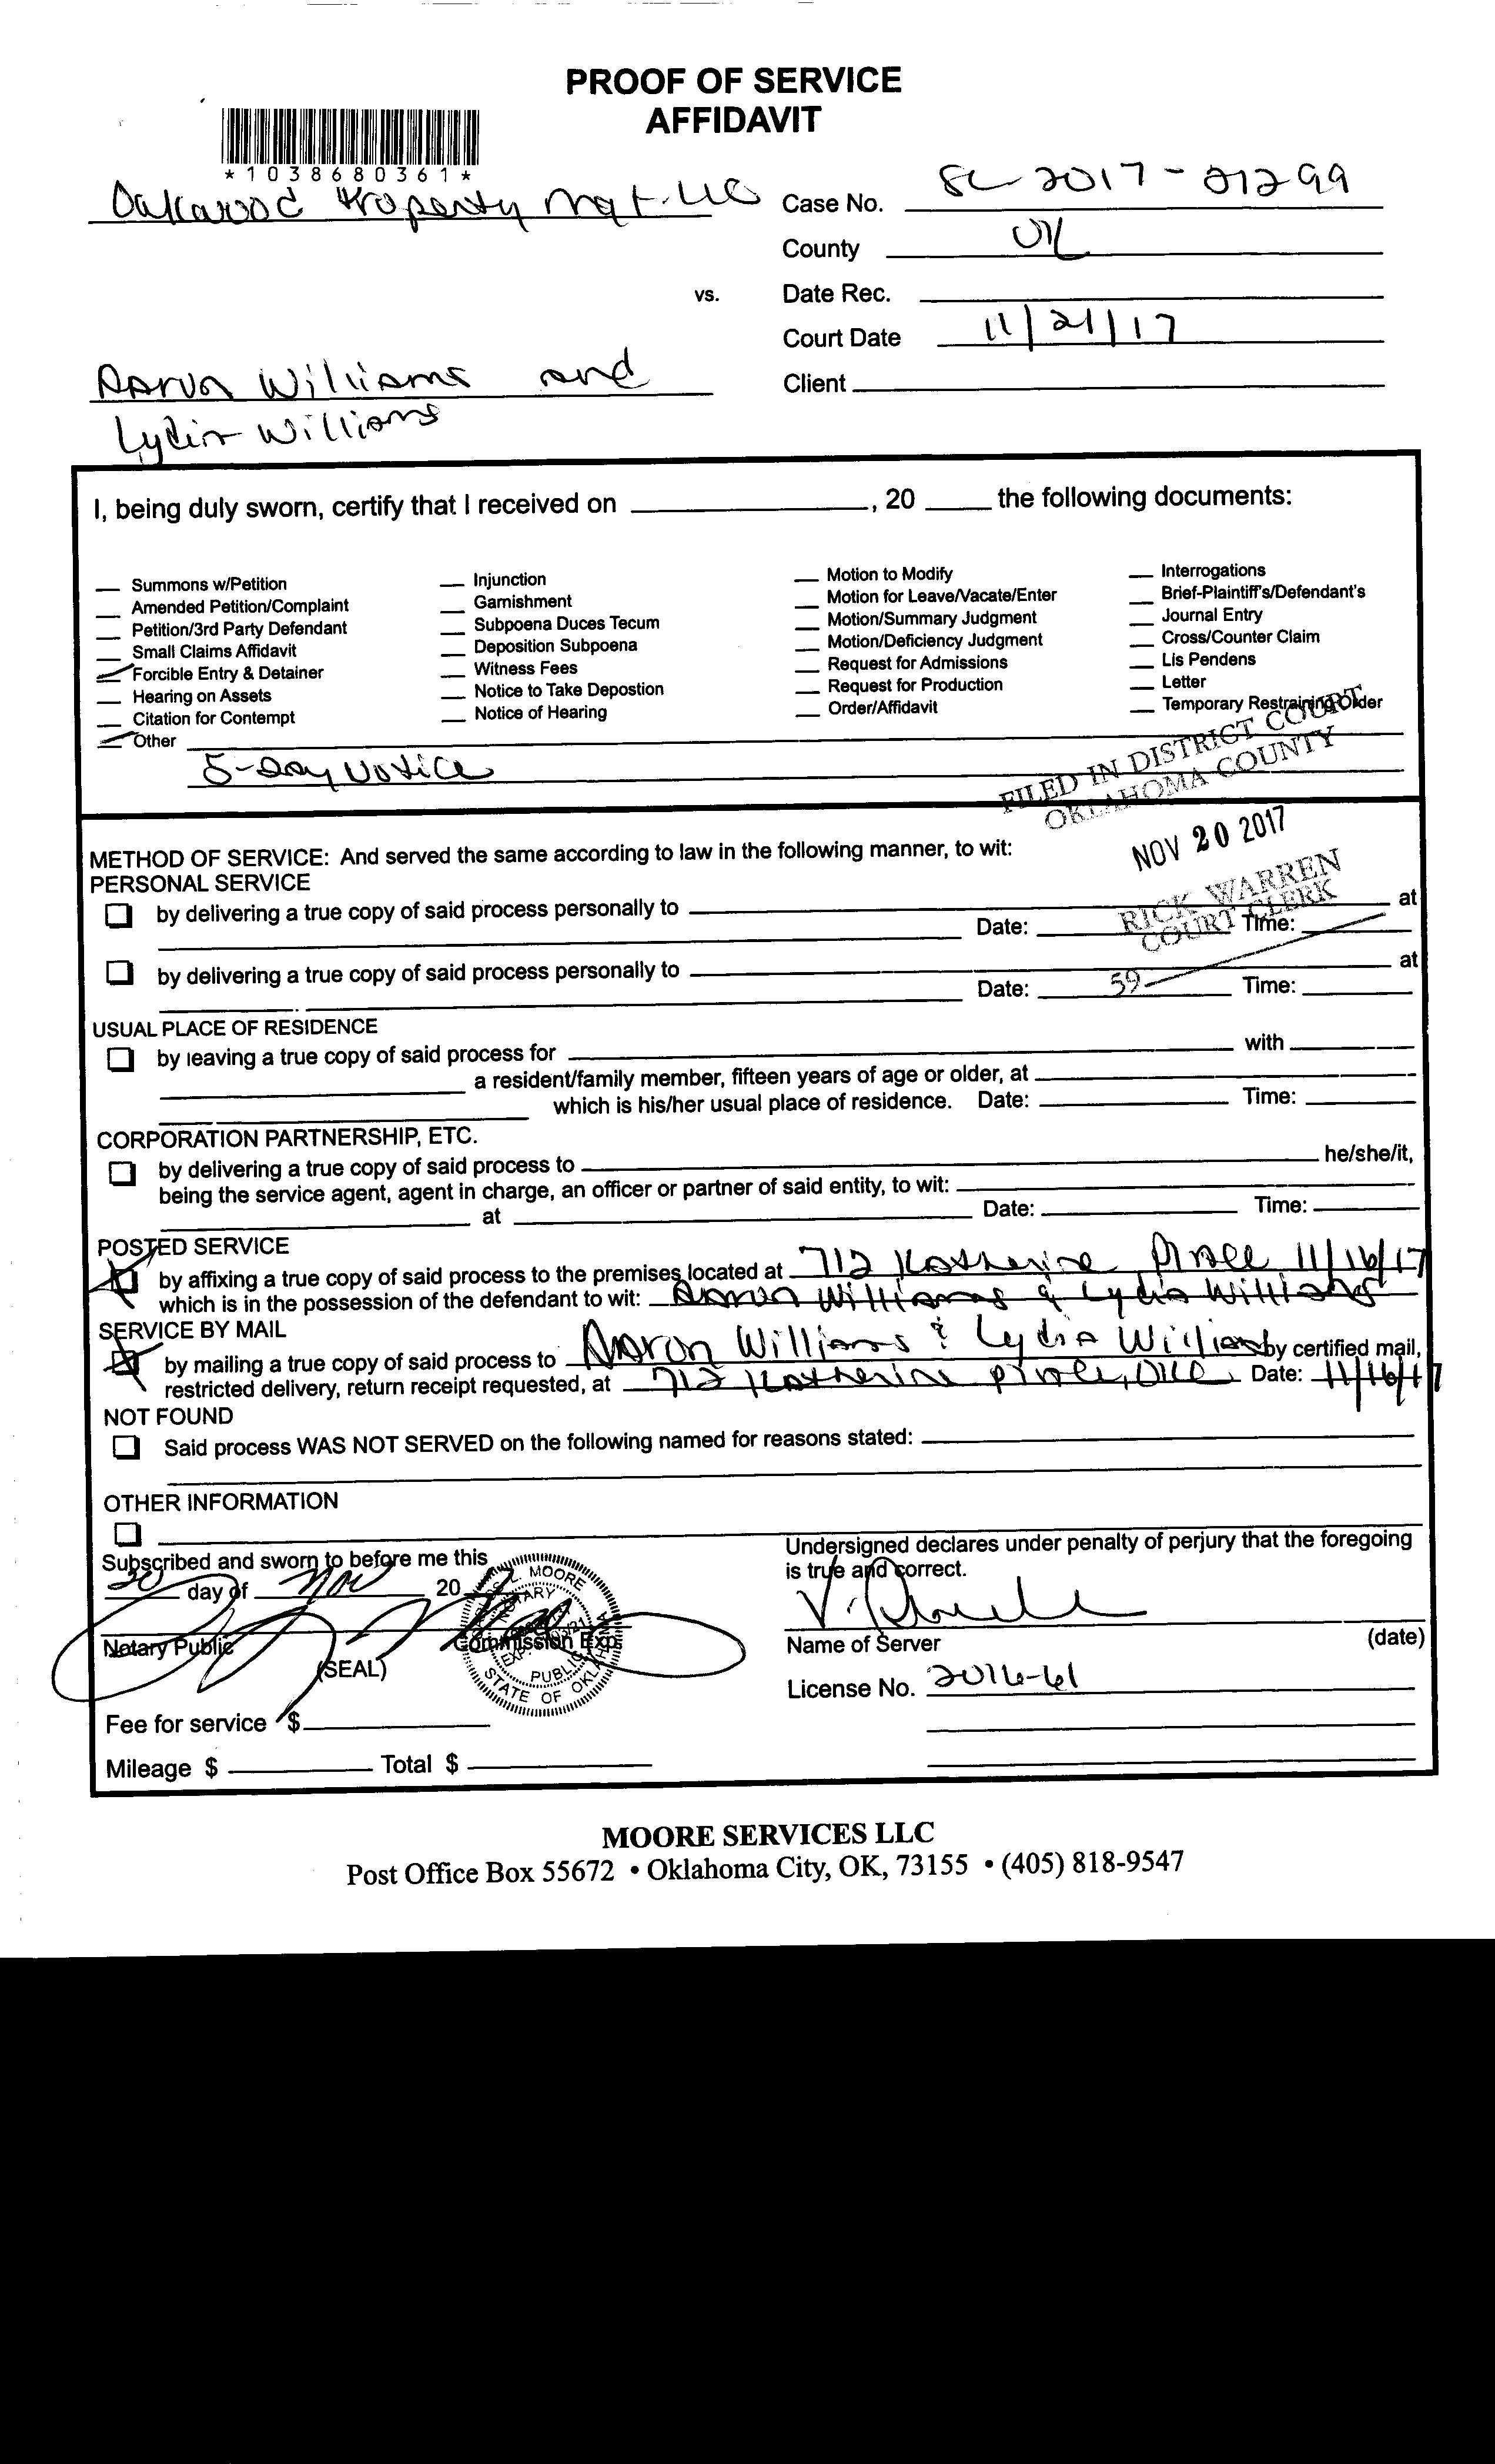 PROOF OF SERVICE
AFFIDAVIT
*1038680361*
Oakwood Property Mgt. LLC
Case No. SC-2017-21299
County OK
vs.
Date Rec.
Court Date 11/21/17
Aaron Williams and
Client
Lydia Williams
I, being duly sworn, certify that I received on ____, 20 ____ the following documents:
Summons w/Petition
Amended Petition/Complaint
Petition/3rd Party Defendant
Small Claims Affidavit
Forcible Entry & Detainer
Hearing on Assets
Citation for Contempt
Other
Injunction
Garnishment
Subpoena Duces Tecum
Deposition Subpoena
Witness Fees
Notice to Take Depostion
Notice of Hearing
Motion to Modify
Motion for Leave/Vacate/Enter
Motion/Summary Judgment
Motion/Deficiency Judgment
Request for Admissions
Request for Production
Order/Affidavit
Interrogations
Brief-Plaintiff's/Defendant's
Journal Entry
Cross/Counter Claim
Lis Pendens
Letter
Temporary Restraining Older
5-Day Notice
FILED IN DISTRICT COURT
OKLAHOMA COUNTY
NOV 20 2017
RICK WARREN
COURT CLERK
59
METHOD OF SERVICE: And served the same according to law in the following manner, to wit:
PERSONAL SERVICE
by delivering a true copy of said process personally to ____ at
Date: ____ Time: ____
by delivering a true copy of said process personally to ____ at
Date: ____ Time: ____
USUAL PLACE OF RESIDENCE
by leaving a true copy of said process for ____ with ____
a resident/family member, fifteen years of age or older, at ____
which is his/her usual place of residence. Date: ____ Time: ____
CORPORATION PARTNERSHIP, ETC.
by delivering a true copy of said process to ____ he/she/it,
being the service agent, agent in charge, an officer or partner of said entity, to wit: ____
at ____ Date: ____ Time: ____
POSTED SERVICE
by affixing a true copy of said process to the premises located at 712 Katherine Place 11/16/17
which is in the possession of the defendant to wit: Aaron Williams & Lydia Williams
SERVICE BY MAIL
by mailing a true copy of said process to Aaron Williams & Lydia Williams by certified mail,
restricted delivery, return receipt requested, at 712 Katherine Place, OKC Date: 11/16/17
NOT FOUND
Said process WAS NOT SERVED on the following named for reasons stated: ____
OTHER INFORMATION
Subscribed and sworn to before me this
20 day of Nov 20
Notary Public
(SEAL)
Commission Exp.
L. MOORE
NOTARY
PUBLIC
STATE OF OKLAHOMA
Undersigned declares under penalty of perjury that the foregoing
is true and correct.
Name of Server (date)
License No. 2016-61
Fee for service $
Mileage $ ____ Total $ ____
MOORE SERVICES LLC
Post Office Box 55672 • Oklahoma City, OK, 73155 • (405) 818-9547